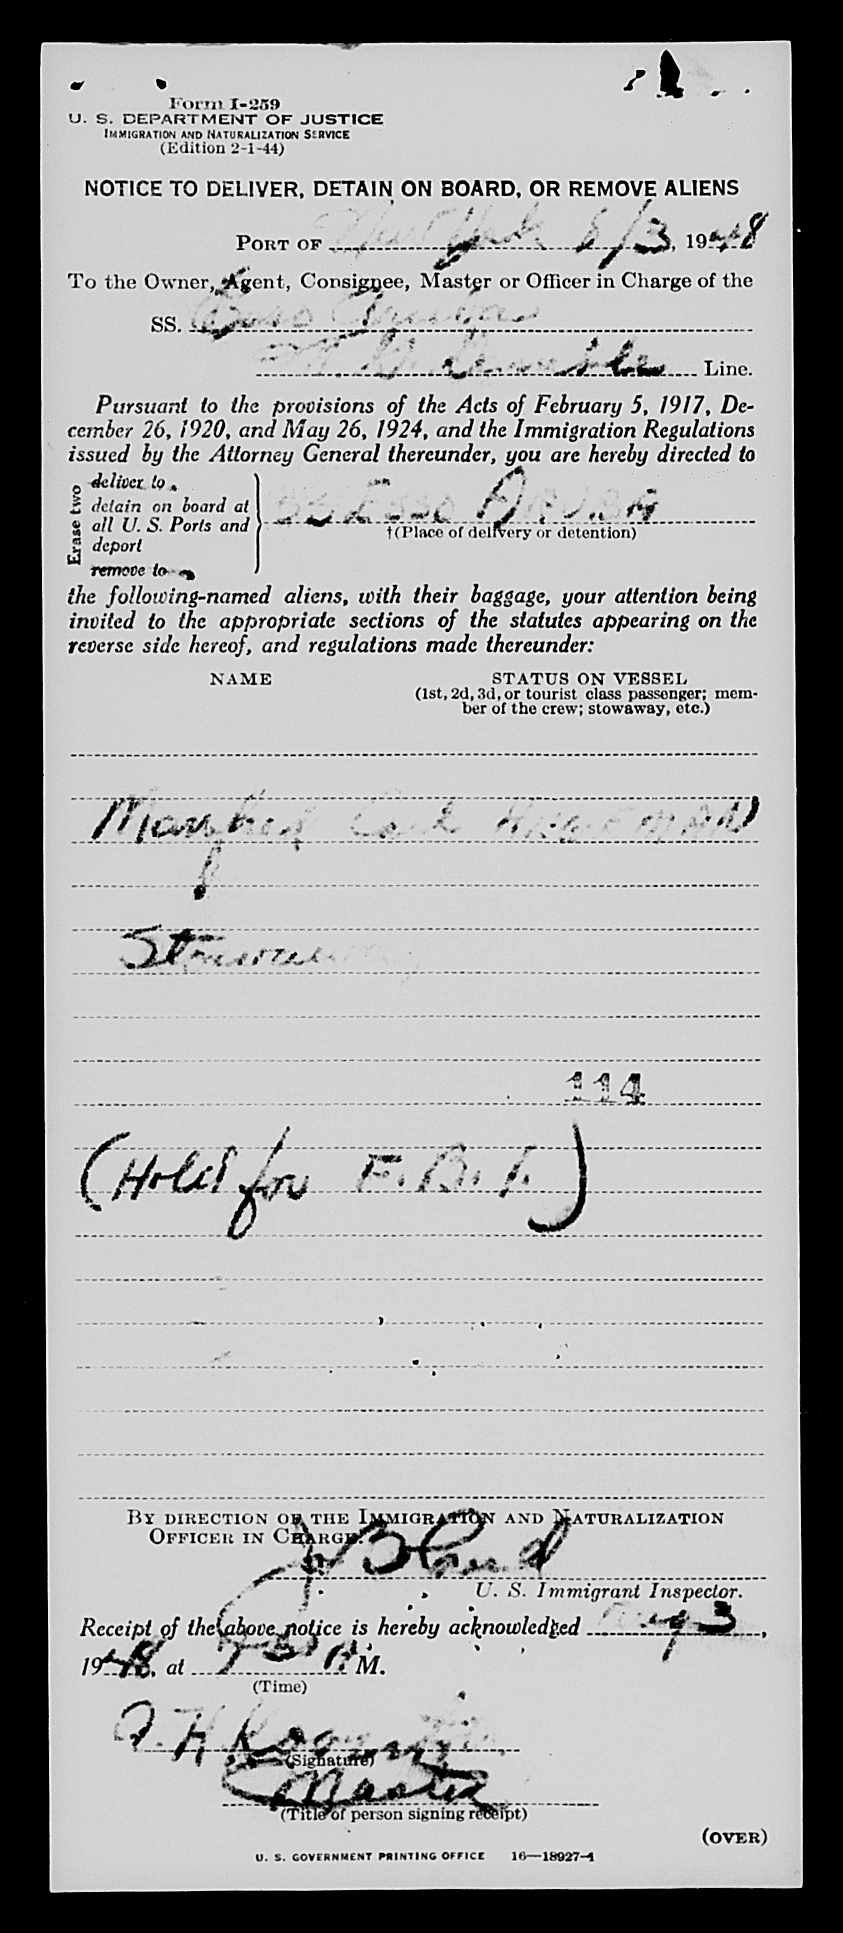 Form I-259
U. S. DEPARTMENT OF JUSTICE
IMMIGRATION AND NATURALIZATION SERVICE
(Edition 2-1-44)
NOTICE TO DELIVER, DETAIN ON BOARD, OR REMOVE ALIENS
PORT OF New York 8/3, 1948
To the Owner, Agent, Consignee, Master or Officer in Charge of the
SS. Esso Aruba
Line.
Pursuant to the provisions of the Acts of February 5, 1917, De-
cember 26, 1920, and May 26, 1924, and the Immigration Regulations
issued by the Attorney General thereunder, you are hereby directed to
Erase two
deliver to
detain on board at
all U. S. Ports and
deport
remove to
SS ESSO ARUBA
†(Place of delivery or detention)
the following-named aliens, with their baggage, your attention being
invited to the appropriate sections of the statutes appearing on the
reverse side hereof, and regulations made thereunder:
NAME STATUS ON VESSEL
(1st, 2d, 3d, or tourist class passenger; mem-
ber of the crew; stowaway, etc.)
Manfred Carl HAGEMANN
Stowaway
114
(Hold for F.B.I.)
BY DIRECTION OF THE IMMIGRATION AND NATURALIZATION
OFFICER IN CHARGE:
U. S. Immigrant Inspector.
Receipt of the above notice is hereby acknowledged Aug 3,
1948, at 7 30 P M.
(Time)
(Signature)
Master
(Title of person signing receipt)
(OVER)
U. S. GOVERNMENT PRINTING OFFICE 16—18927-1